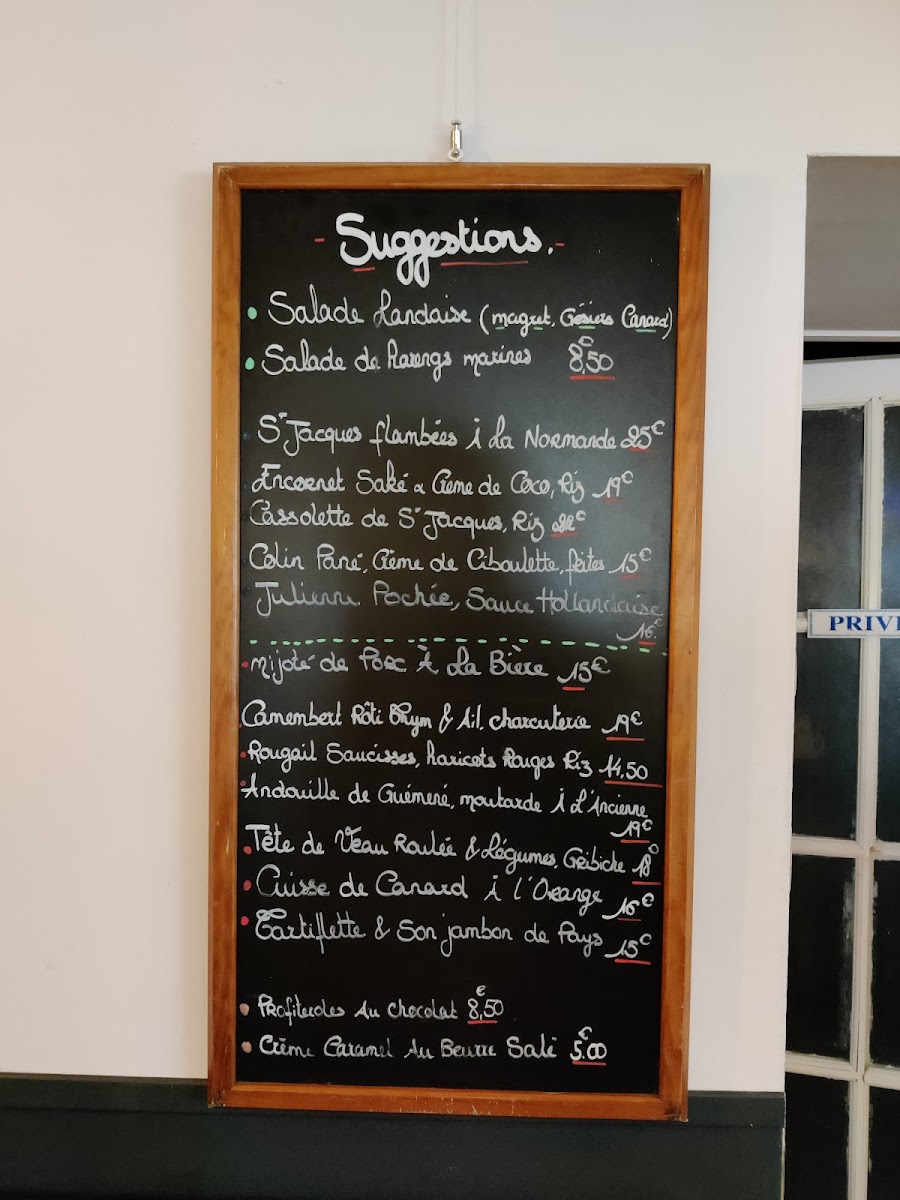 - Suggestions. -
Salade Landaise (magret, Gésiers Canard)
Salade de Harengs marinés 8,50€
St Jacques flambées à la Normande 25€
PRIV
Encornet Saké & Crème de Coco, Riz 19€
Cassolette de St Jacques, Riz 22€
Colin Pané, Crème de Ciboulette, frites 15€
Julienne Pochée, Sauce Hollandaise
16€
mijoté de Porc À La Bière 15€
Camembert Rôti Thym & Ail, charcuterie 19€
Rougail Saucisses, haricots Rouges Riz 14,50
Andouille de Guémené, moutarde à L'Ancienne
19€
Tête de Veau Roulée & Légumes, Gribiche 18€
Cuisse de Canard à l'Orange 16€
Tartiflette & Son jambon de Pays 15€
Profiteroles Au Chocolat 8,50€
Crème Caramel Au Beurre Salé 5.00€